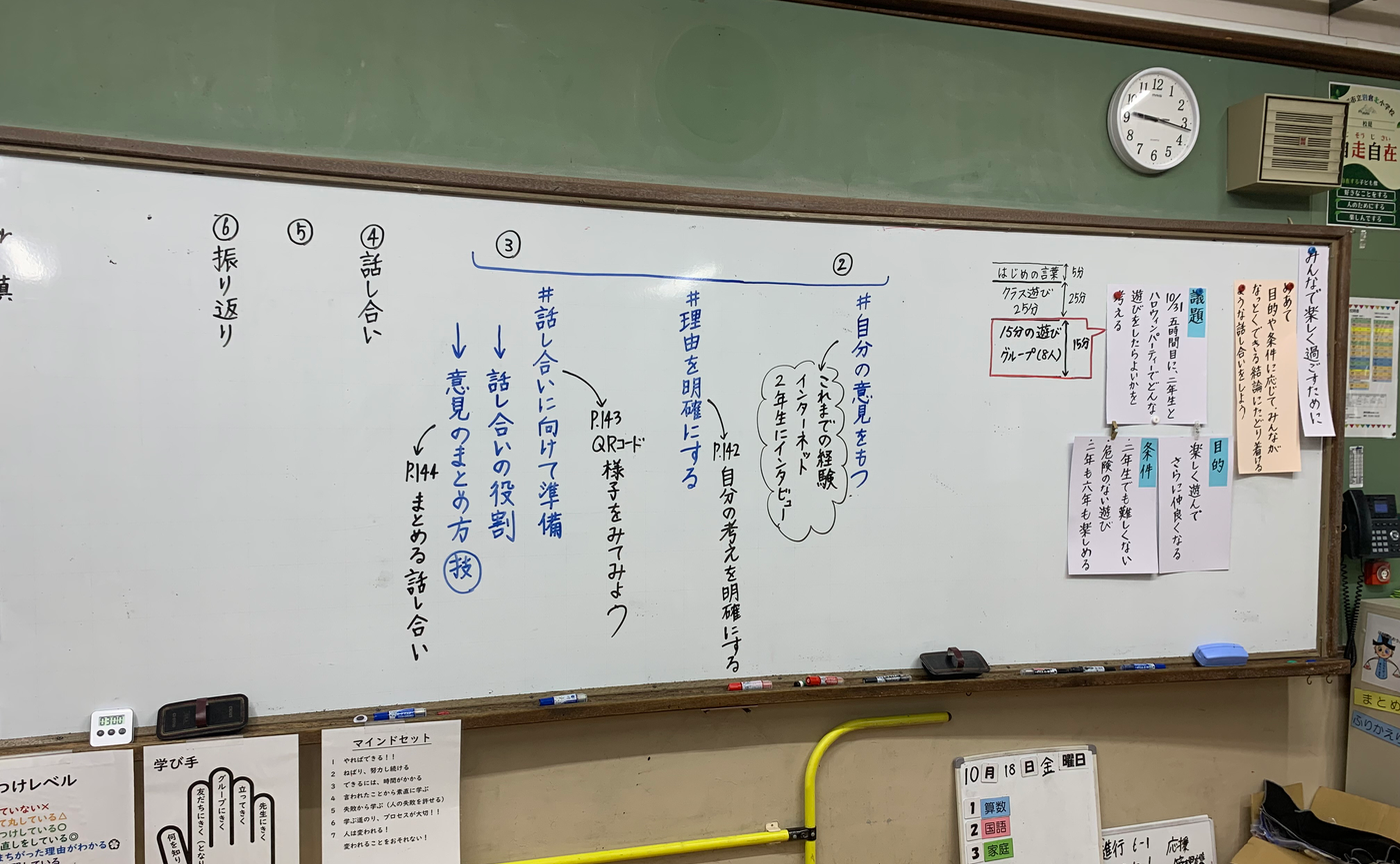 みんなで楽しく過ごすために
めあて
目的や条件に応じて、みんなが
なっとくできる結論にたどり着ける
ような話し合いをしよう
議題
10/31 五時間目に、二年生と
ハロウィンパーティーでどんな
遊びをしたらよいかを
考える
目的
楽しく遊んで
さらに仲良くなる
条件
二年生でも難しくない
危険のない遊び
二年も六年も楽しめる
はじめの言葉
5分
クラス遊び
25分
25分
15分の遊び
グループ(8人)
15分
②
#自分の意見をもつ
これまでの経験
インターネット
2年生にインタビュー
#理由を明確にする
P.142
自分の考えを明確にする
③
#話し合いに向けて準備
P.143
QRコード
様子をみてみよう
→話し合いの役割
→意見のまとめ方 技
P.144
まとめる話し合い
④話し合い
⑤
⑥振り返り
12
1
2
3
4
5
6
7
8
9
10
11
校風
そう じ ざい
自走自在
好きなことをする
人のためにする
楽しんでする
まとめ
ふりかえ
0300
つけレベル
ていない×
て丸している△
つけしている○
直しをしている◎
まちがった理由がわかる
学び手
友だちにきく(となり
グループにきく
立ってきく
先生にきく
何を知り
マインドセット
1 やればできる！！
2 ねばり、努力し続ける
3 できるには、時間がかかる
4 言われたことから素直に学ぶ
5 失敗から学ぶ（人の失敗を許せる）
6 学ぶ道のり、プロセスが大切！！
7 人は変われる！
変われることをおそれない！
10月18日金曜日
1 算数
2 国語
3 家庭
進行 6-1 応援